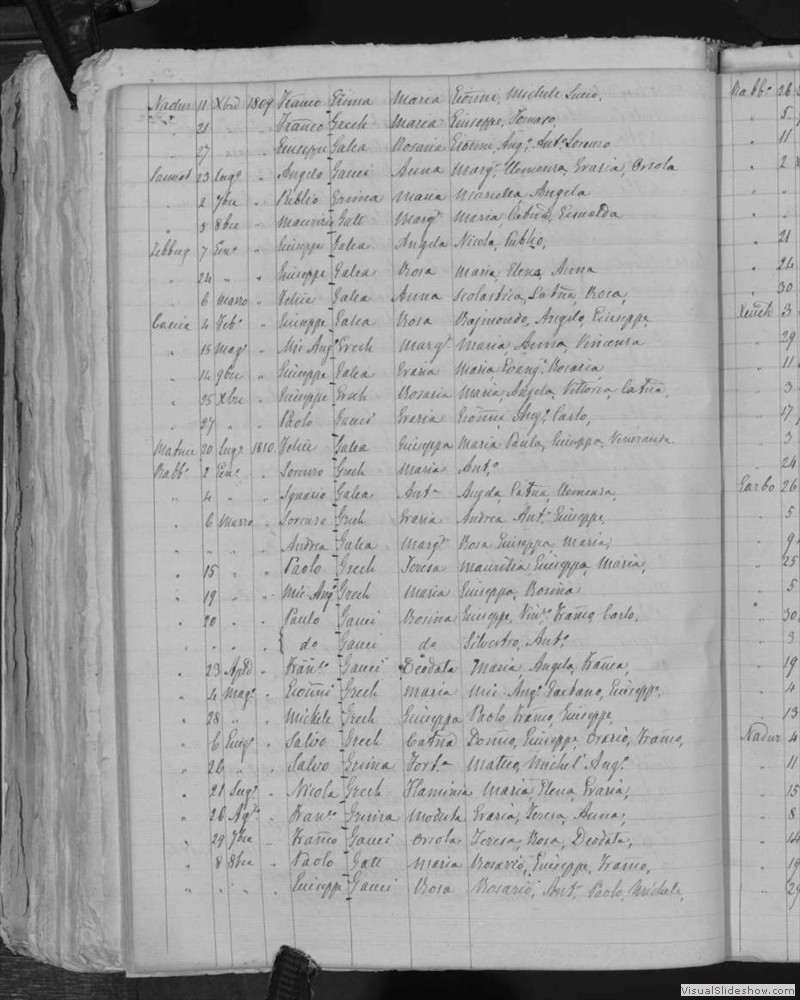 Nadur 11 Xbre 1809 Franco Grima Maria Gionni, Michele Lucio,
" 21 " " Franco Grech Maria Giuseppe, Tomaso,
" 27 " " Giuseppe Galea Rosaria Gionni, Ang.º Ant.º Lorenzo
Sannat 23 Lug.º " Angelo Gauci Anna Marg.ª Clemenza, Grazia, Orsola
" 2 7bre " Publio Grima Maria Marietta, Angela
" 5 8bre " Maurizio Galt Marg.ª Maria, Catña, Esmalda
Zebbug 7 Gen.º " Giuseppe Galea Angela Nicola, Publio,
" 24 " " Giuseppe Galea Rosa Maria, Elena, Anna
" 6 Marzo " Felice Galea Anna Scolastica, Catña, Rosa,
Caccia 4 Feb.º " Giuseppe Galea Rosa Rajmondo, Angelo, Giuseppe,
" 15 Mag.º " Mic Ang.º Grech Marg.ª Maria Anna, Vincenza
" 14 9bre " Giuseppe Galea Grazia Maria Evang.ª Rosaria
" 25 Xbre " Giuseppe Grech Rosaria Maria, Angela, Vittoria, Catña,
" 27 " " Paolo Gauci Grazia Gionni, Ang.º Carlo,
Matrice 20 Lug.º 1810 Felice Galea Giuseppa Maria Paula, Giuseppa, Veneranda
Rabb.º 2 Gen.º " Lorenzo Grech Maria Ant.º
" 4 " " Ignazio Galea Ant.ª Angela, Catña, Clemenza,
" 6 Marzo " Lorenzo Grech Grazia Andrea Ant.º Giuseppe,
" " " " Andrea Galea Marg.ª Rosa Giuseppa Maria,
" 15 " " Paolo Grech Teresa Maurizia, Giuseppa, Maria,
" 19 " " Mic Ang.º Grech Maria Giuseppa, Rosina
" 20 " " Paulo Gauci Rosina Giuseppe, Vin.º Franco, Carlo,
" " " " { do Gauci do Silvestro, Ant.º
" 23 Aple " Fran.co Gauci Deodata Maria Angela, Franca,
" 4 Mag.º " Gionni Grech Maria Mic Ang.º Gaetano, Giuseppe,
" 28 " " Michele Grech Giuseppa Paolo, Franco, Giuseppe,
" 6 Giug.º " Salvo Grech Catña Donño, Giuseppe, Orazio, Franco,
" 26 " " Salvo Grima Fort.ª Matteo, Michel' Ang.º
" 21 Lug.º " Nicola Grech Flaminia Maria, Elena, Grazia,
" 26 Ag.to " Fran.co Grima Modesta Grazia, Teresa, Anna,
" 29 7bre " Franco Gauci Orsola Teresa, Rosa, Deodata,
" 8 8bre " Paolo Galt Maria Rosario, Giuseppe, Franco,
" " " " Giuseppe Gauci Rosa Rosario, Ant.º Paolo, Michele,
Rabb.º 26
" 5
" 11
" 2
" 21
" 24
" 30
Xeuch 3
" 29
" 11
" 3
" 17
" 3
" 24
Garbo 26
" 5
" 9
" 25
" 5
" 30
" 3
" 19
" 4
" 13
Nadur 4
" 11
" 15
" 8
" 14
" 19
" 29
VisualSlideshow.com